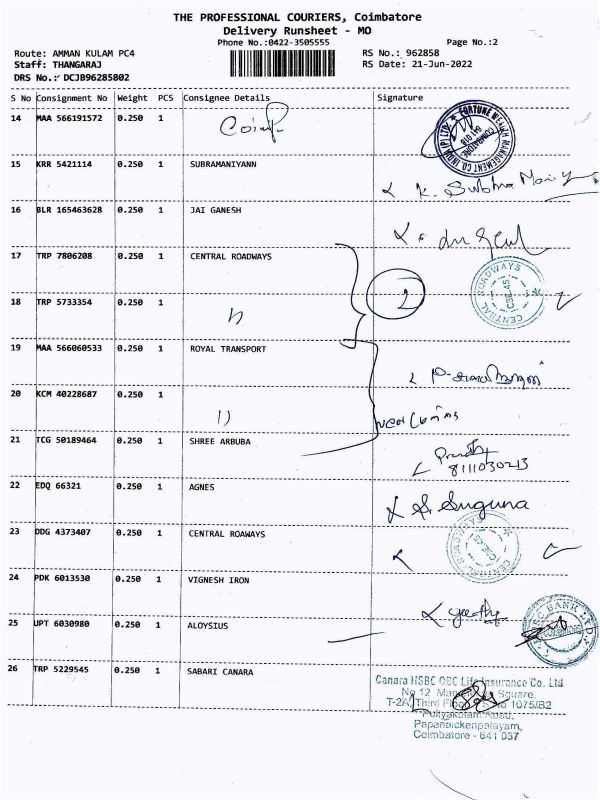 THE PROFESSIONAL COURIERS, Coimbatore
Delivery Runsheet - MO
Phone No.:0422-3505555 Page No.:2
Route: AMMAN KULAM PC4 RS No.: 962858
Staff: THANGARAJ RS Date: 21-Jun-2022
DRS No.: DCJB96285802
S No Consignment No Weight PCS Consignee Details Signature
14 MAA 566191572 0.250 1
FORTUNE WEALTH MANAGEMENT CO INDIA (P) LTD
COIMBATORE
641 018
15 KRR 5421114 0.250 1 SUBRAMANIYANN
K. Subbu
16 BLR 165463628 0.250 1 JAI GANESH
17 TRP 7806208 0.250 1 CENTRAL ROADWAYS
2
CENTRAL ROADWAYS
CBE-45
18 TRP 5733354 0.250 1 "
19 MAA 566060533 0.250 1 ROYAL TRANSPORT
20 KCM 40228687 0.250 1 "
21 TCG 50189464 0.250 1 SHREE ARBUBA
8111030213
22 EDQ 66321 0.250 1 AGNES
S. Suguna
23 DDG 4373407 0.250 1 CENTRAL ROAWAYS
CENTRAL ROADWAYS
24 PDK 6013530 0.250 1 VIGNESH IRON
25 UPT 6030980 0.250 1 ALOYSIUS
BANK LTD
26 TRP 5229545 0.250 1 SABARI CANARA
Canara HSBC OBC Life Insurance Co. Ltd
No 12 Square.
T-2A, Third 1075/B2
Road,
Papanaickenpalayam,
Coimbatore - 641 037